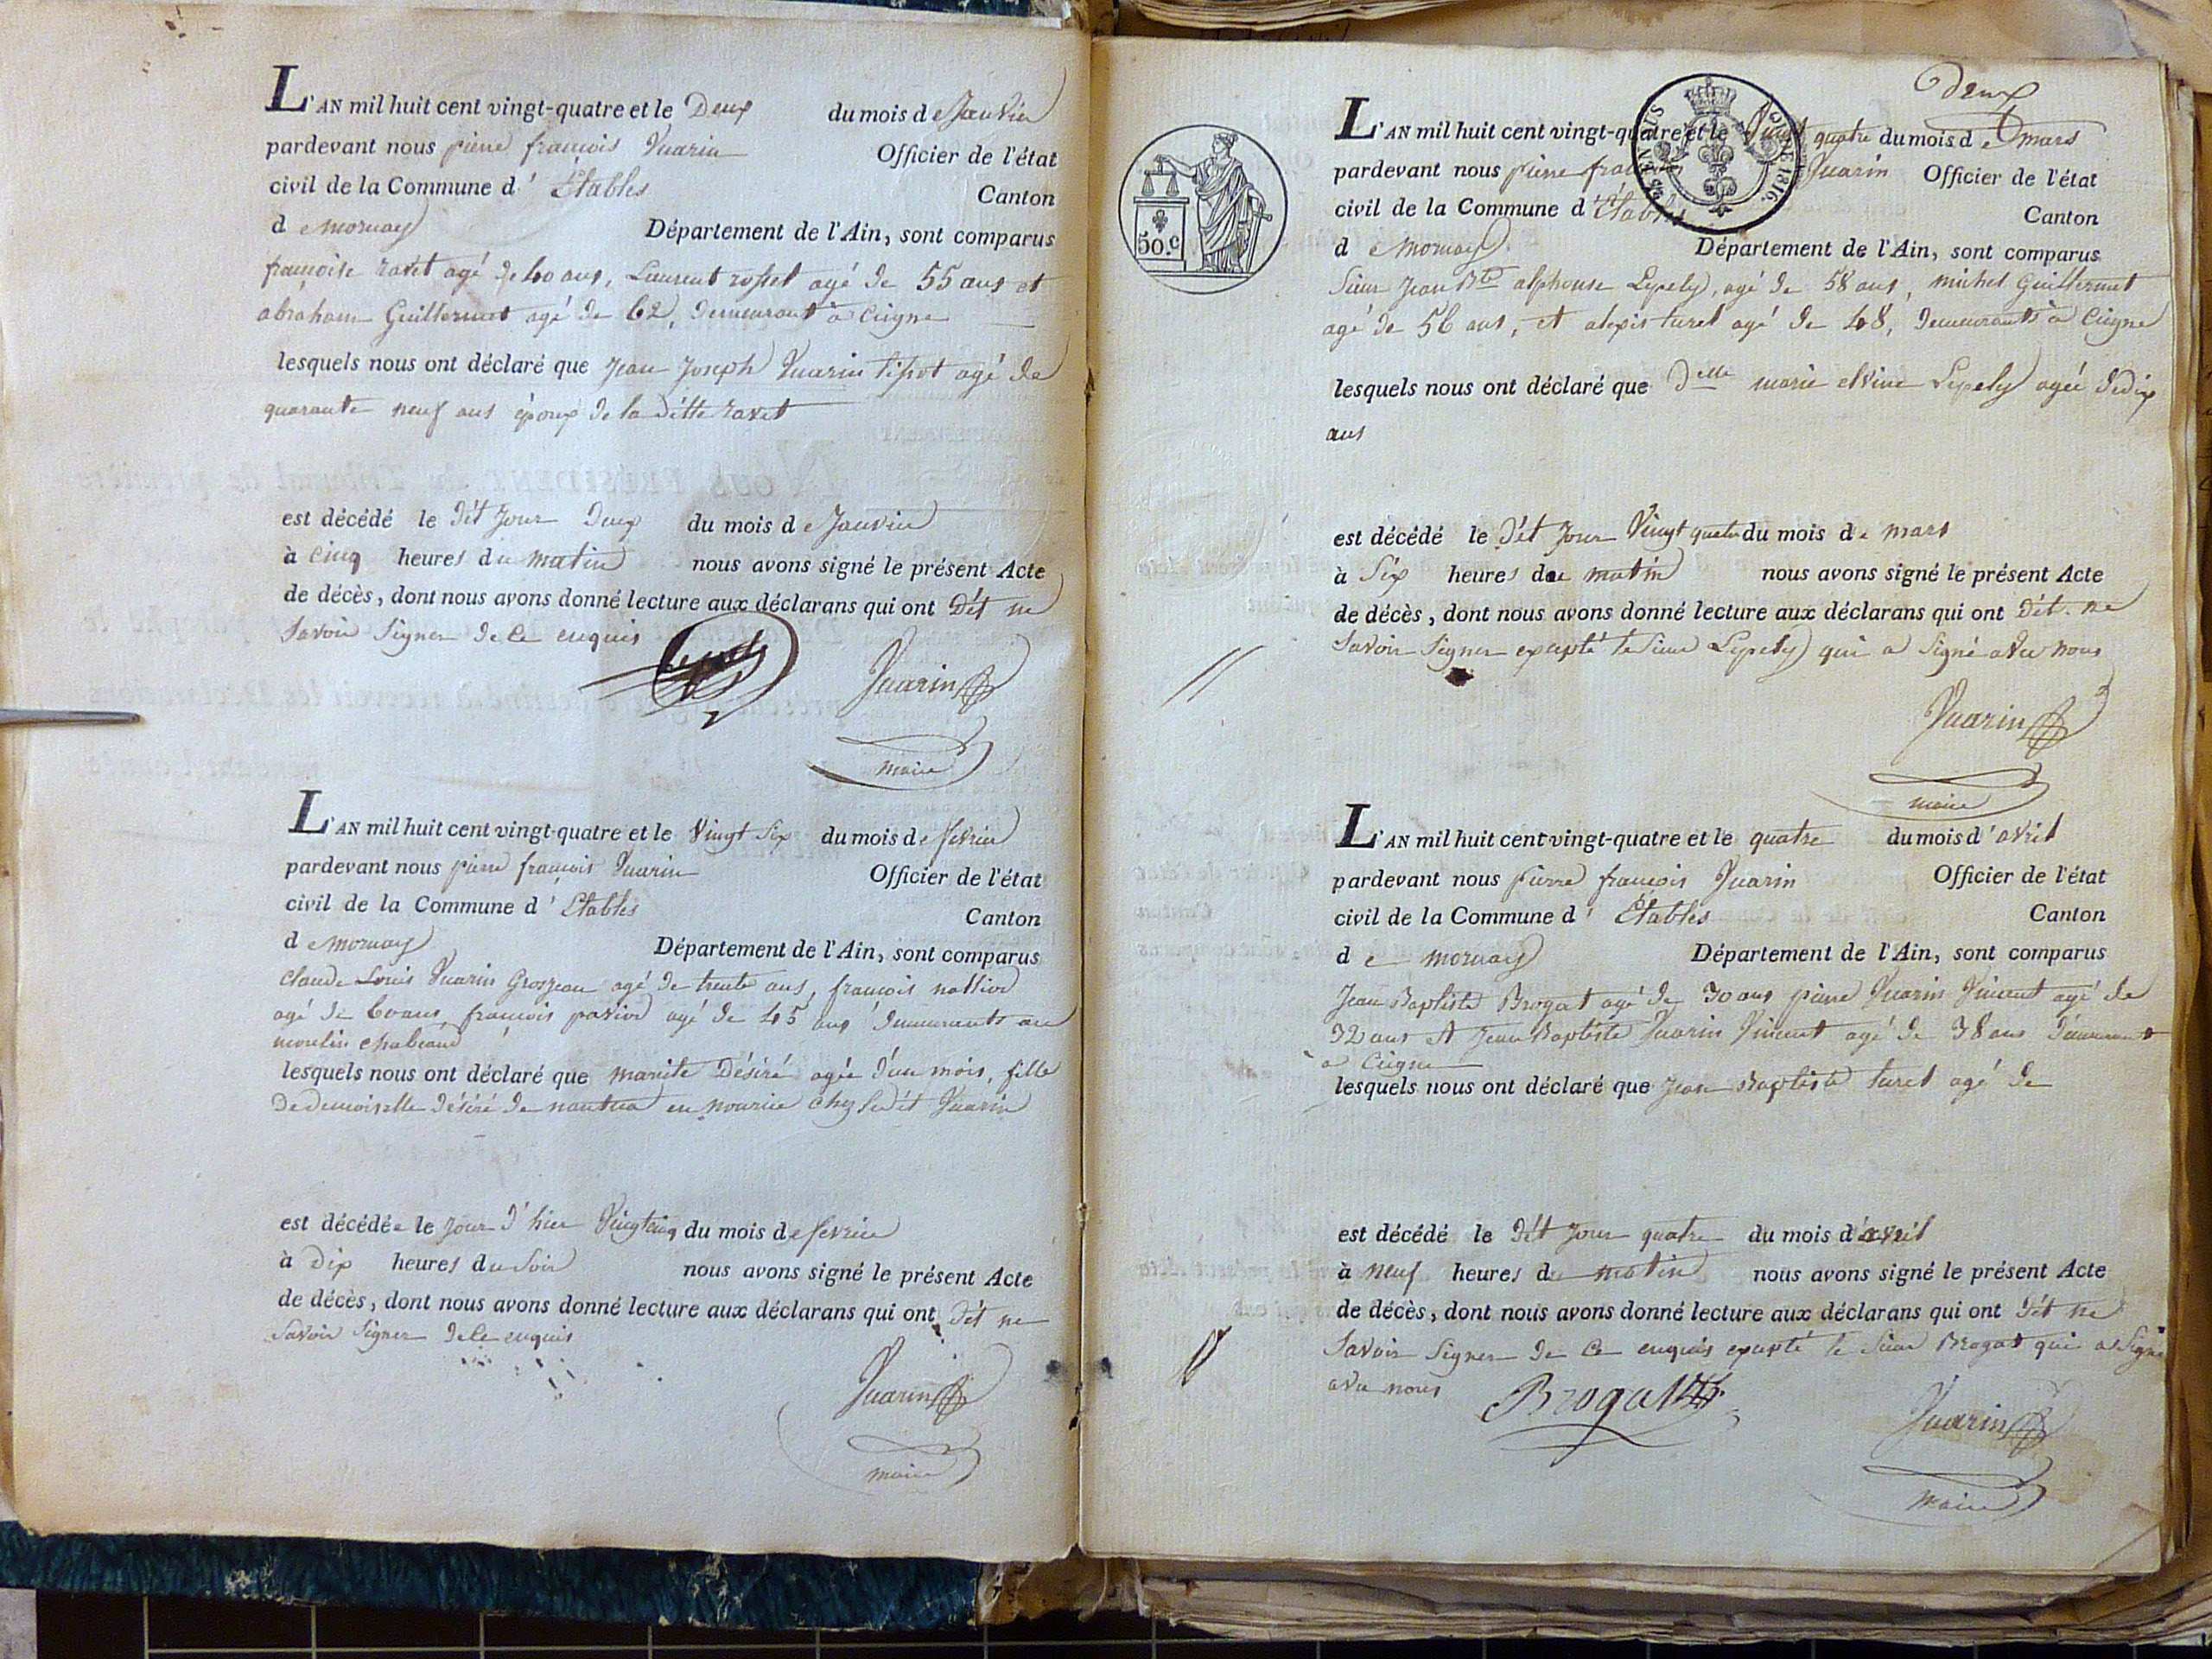 L'AN mil huit cent vingt-quatre et le Deux du mois de Janvier
pardevant nous pierre françois Vuarin Officier de l'état
civil de la Commune d' Etables Canton
de mornay Département de l'Ain, sont comparus
françoise ravet agé de 40 ans, Laurent rosset agé de 55 ans et
abraham Guillermet agé de 62, demeurant à Ceigne
lesquels nous ont déclaré que Jean Joseph Vuarin tissot agé de
quarante neuf ans époux de la ditte ravet
est décédé le dit Jour Deux du mois de Janvier
à Cinq heures du matin nous avons signé le présent Acte
de décès, dont nous avons donné lecture aux déclarans qui ont dit ne
Savoir Signer de Ce enquis
Vuarin
maire
L'AN mil huit cent vingt-quatre et le Vingt Six du mois de fevrier
pardevant nous pierre françois Vuarin Officier de l'état
civil de la Commune d' Etables Canton
de mornay Département de l'Ain, sont comparus
Claude Louis Vuarin Grosjean agé de trente ans, francois
agé de 60 ans, francois agé de 45 ans demeurants au
moulin Chabeaud
lesquels nous ont déclaré que mariete Désiré agée d'un mois, fille
De demoiselle désiré de nantua en nourice chez ledit Vuarin
est décédée le Jour d'hier Vingt cinq du mois de fevrier
à Dix heures du Soir nous avons signé le présent Acte
de décès, dont nous avons donné lecture aux déclarans qui ont dit ne
Savoir Signer de Ce enquis
Vuarin
maire
deux
L'AN mil huit cent vingt-quatre et le Vingt quatre du mois de mars
pardevant nous pierre françois Vuarin Officier de l'état
civil de la Commune d' Etables Canton
de mornay Département de l'Ain, sont comparus
50.c
1816.
Sieur Jean Bte alphonse Lepely, agé de 58 ans, michel Guillermet
agé de 56 ans, et alexis turel agé de 48, demeurants à Ceigne
lesquels nous ont déclaré que Delle marie elvine Lepely agée de dix
ans
est décédé le dit Jour Vingt quatre du mois de mars
à Six heures du matin nous avons signé le présent Acte
de décès, dont nous avons donné lecture aux déclarans qui ont dit ne
Savoir Signer excepté le Sieur Lepely qui a Signé avec nous
Vuarin
maire
L'AN mil huit cent vingt-quatre et le quatre du mois d'avril
pardevant nous pierre françois Vuarin Officier de l'état
civil de la Commune d' Etables Canton
de mornay Département de l'Ain, sont comparus
Jean Baptiste Brogat agé de 30 ans pierre Vuarin Vincent agé de
32 ans et Jean Baptiste Vuarin Vincent agé de 38 ans demeurant
à Ceigne
lesquels nous ont déclaré que Jean Baptiste turel agé de
est décédé le dit Jour quatre du mois d'avril
à neuf heures du matin nous avons signé le présent Acte
de décès, dont nous avons donné lecture aux déclarans qui ont dit ne
Savoir Signer de Ce enquis excepté le Sieur Brogat qui a Signé
avec nous Brogat Vuarin
maire